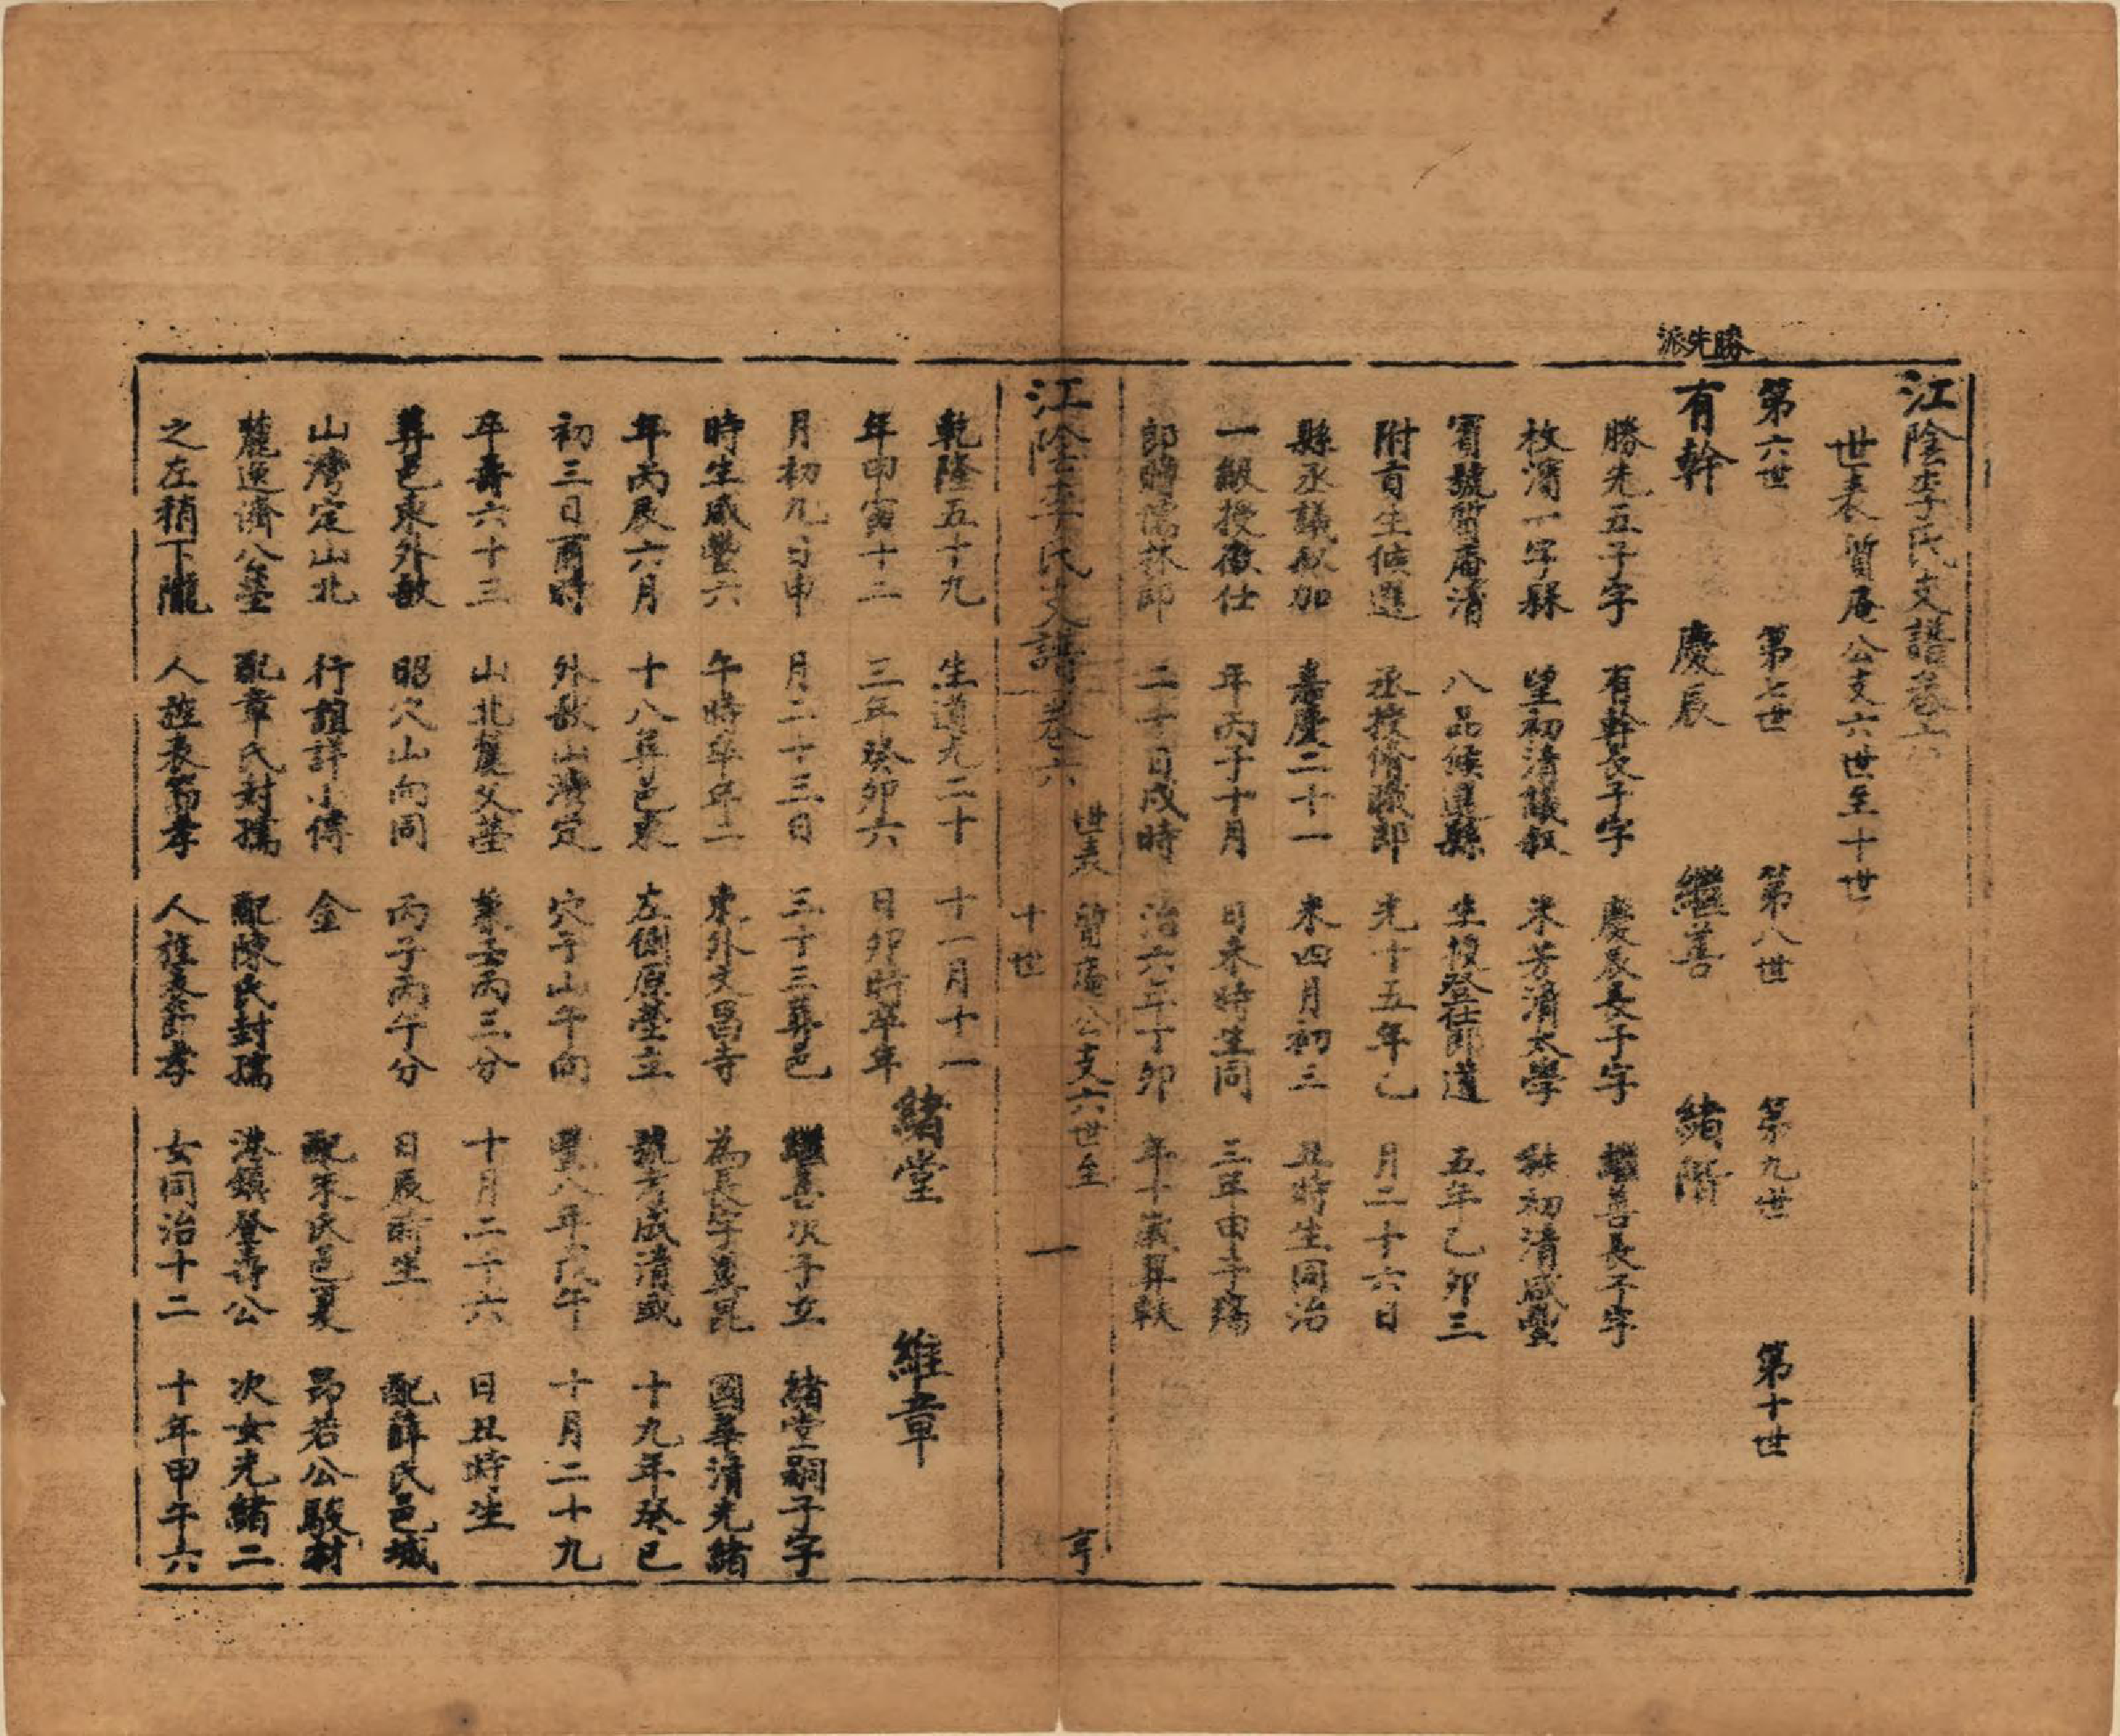 江陰李氏支譜卷六
世表 質庵公支六世至十世
勝先派
第六世 第七世 第八世 第九世 第十世
有幹 慶辰 繼善 緒階
勝先五子字 有幹長子字 慶辰長子字 繼善長子字
枚濱一字縣 望初清議敘 米芳清太學 秋初清咸豐
賓號質庵清 八品候選縣 生授登仕郎道 五年乙卯三
附貢生候選 丞授脩職郎 光十五年乙 月二十六日
縣丞議敘加 嘉慶二十一 未四月初三 丑時生同治
一級授徵仕 年丙子十月 日未時生同 三年甲子殤
郎贈儒林郎 二十日戌時 治六年丁卯 年十歲葬軼
江陰李氏支譜卷六 世表 質庵公支六世至十世 一 亨
乾隆五十九 生道光二十 十一月十一
年甲寅十二 三年癸卯六 日卯時卒年 緒堂 維章
月初九日申 月二十三日 三十三葬邑 繼善次子立 緒堂嗣子字
時生咸豐六 午時卒年二 東外文昌寺 為長字蓂昆 國華清光緒
年丙辰六月 十八葬邑東 左側原塋立 號芳成清咸 十九年癸巳
初三日酉時 外敔山灣定 穴子山午向 豐八年戊午 十月二十九
卒壽六十三 山北麓父塋 兼壬丙三分 十月二十六 日丑時生
葬邑東外敔 昭穴山向同 丙子丙午分 日辰時生 配薛氏邑城
山灣定山北 行誼詳小傳 金 配朱氏邑夏 昂若公駿材
麓逸濟公塋 配章氏封孺 配陳氏封孺 港鎮登壽公 次女光緒二
之左稍下隴 人旌表節孝 人旌表節孝 女同治十二 十年甲午六